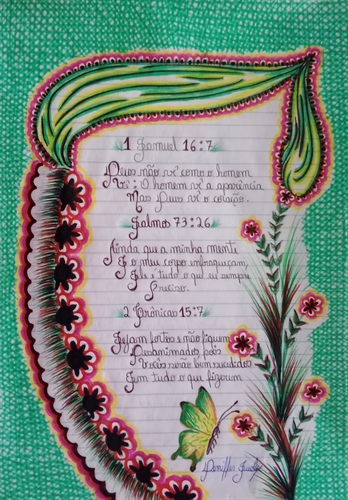 1 Samuel 16:7
Deus não vê como o homem
vê: O homem vê a aparência
Mas Deus vê o coração.
Salmos 73:26
Ainda que a minha mente
E o meu corpo enfraqueçam,
Ele é tudo o que eu sempre
Preciso.
2 Crônicas 15:7
Sejam fortes e não fiquem
Desanimados, pois
Vocês serão bem sucedidos
Em tudo o que fizerem